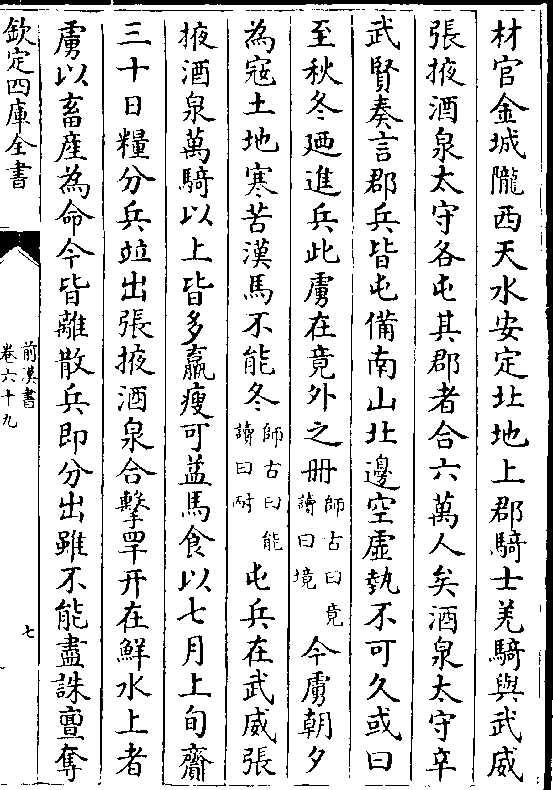 材官金城隴西天水安定北地上郡騎士羌騎與武威
張掖酒泉太守各屯其郡者合六萬人矣酒泉太守辛
武賢奏言郡兵皆屯備南山北邊空虛埶不可久或曰
至秋冬廼進兵此虜在竟外之冊師古曰竟讀曰境今虜朝夕
為寇土地寒苦漢馬不能冬師古曰能讀曰耐屯兵在武威張
掖酒泉萬騎以上皆多羸瘦可益馬食以七月上旬齎
三十日糧分兵並出張掖酒泉合擊䍐幵在鮮水上者
虜以畜產為命今皆離散兵即分出雖不能盡誅亶奪
欽定四庫全書
前漢書
卷六十九
七